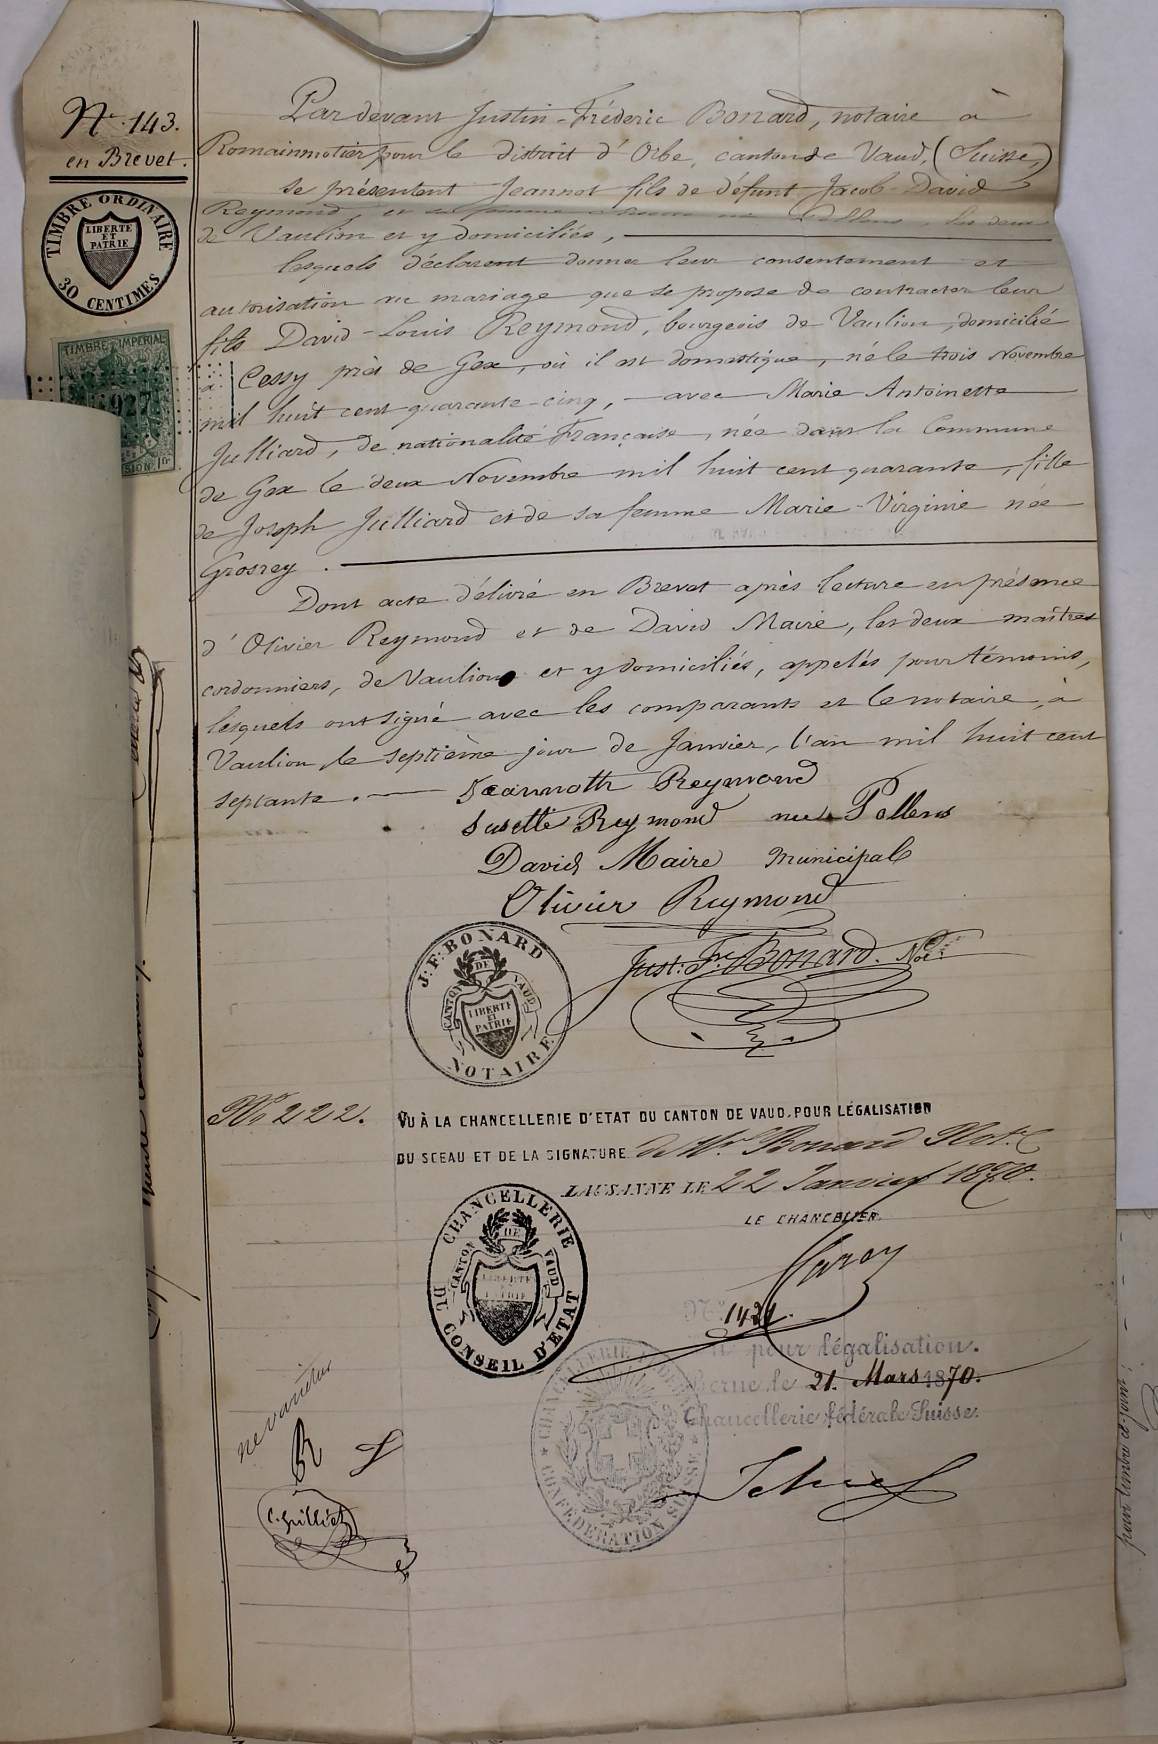 N° 143.
en Brevet.
TIMBRE ORDINAIRE
LIBERTE
ET
PATRIE
30 CENTIMES
TIMBRE IMPERIAL
927
Par devant Justin-Fréderic Bonard, notaire à
Romainmotier pour le district d'Orbe, canton de Vaud, (Suisse,)
se présentent Jeannot fils de défunt Jacob-David
Reymond, et sa femme les deux
de Vaulion et y domiciliés,
lesquels déclarent donner leur consentement et
autorisation au mariage que se propose de contracter leur
fils David-Louis Reymond, bourgeois de Vaulion, domicilié
à Cessy près de Gex, où il est domestique, né le trois Novembre
mil huit cent quarante-cinq, — avec Marie Antoinette
Julliard, de nationalité Française, née dans la Commune
de Gex le deux Novembre mil huit cent quarante, fille
de Joseph Julliard et de sa femme Marie-Virginie née
Grosrey.
Dont acte délivré en Brevet après lecture en présence
d'Olivier Reymond et de David Maire, les deux maîtres
cordonniers, de Vaulion et y domiciliés, appelés pour témoins,
lesquels ont signé avec les comparants et le notaire, à
Vaulion, le septième jour de Janvier, l'an mil huit cent
septante. — Jeannoth Reymond
Susette Reymond née Pollens
David Maire Municipal
Olivier Reymond
Just: Fric Bonard. Not:
J: F: BONARD
CANTON DE VAUD
LIBERTE
ET
PATRIE
NOTAIRE
No 222.
VU À LA CHANCELLERIE D'ETAT DU CANTON DE VAUD, POUR LÉGALISATION
DU SCEAU ET DE LA SIGNATURE de Mr. Bonard Not.
LAUSANNE LE 22 Janvier 1870.
LE CHANCELIER.
CHANCELLERIE
CANTON DE VAUD
LIBERTE
ET PATRIE
DU CONSEIL D'ETAT
No 1421.
pour légalisation.
Berne le 21. Mars 1870.
Chancellerie fédérale Suisse.
CHANCELLERIE
CONFEDERATION SUISSE
ne varietur
C. Grilliet
pour timbre ci-joint: